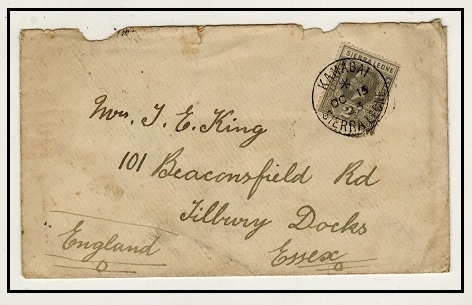 SIERRA LEONE
KAMABAI
OC 15
SIERRA LEONE
Mrs. J. E. King
101 Beaconsfield Rd
Tilbury Docks
Essex
England